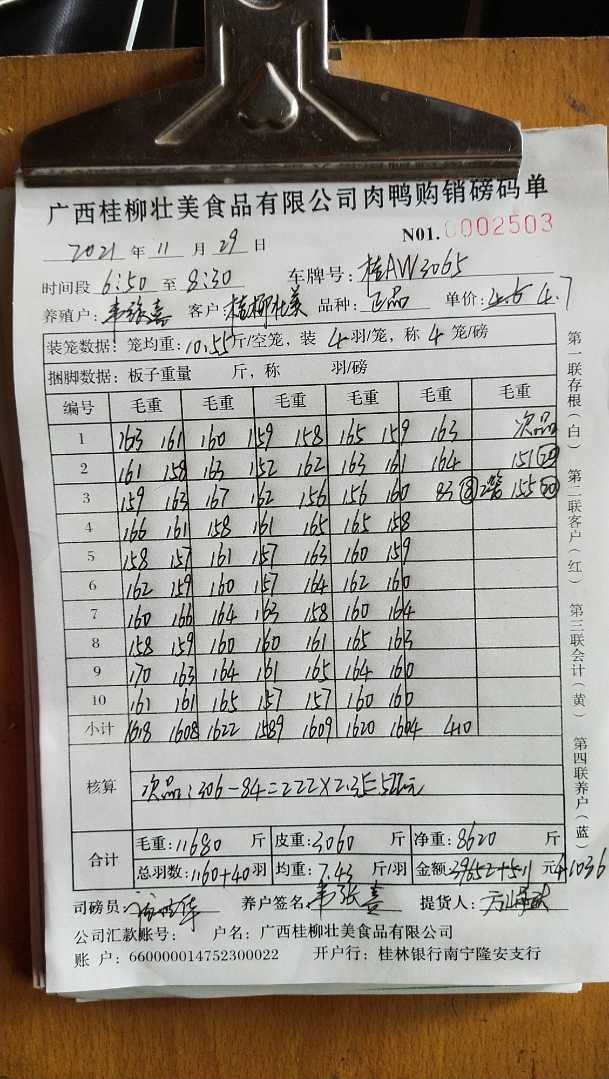 广西桂柳壮美食品有限公司肉鸭购销磅码单
2021 年 11 月 29 日 N01. 0002503
时间段 6:50 至 8:30 车牌号: 桂AW3065
养殖户: 韦张喜 客户: 桂柳壮美 品种: 正品 单价: 4.6 4.7
装笼数据: 笼均重: 10.55 斤/空笼, 装 4 羽/笼, 称 4 笼/磅
捆脚数据: 板子重量 斤, 称 羽/磅
编号 毛重 毛重 毛重 毛重 毛重 毛重
1 163 161 160 159 158 165 159 163 次品
2 161 158 163 152 162 163 161 164 151
3 159 163 167 162 156 156 160 83 ⑧ 155
4 166 161 158 161 165 165 158
5 158 157 161 157 163 160 159
6 162 159 160 157 164 162 160
7 160 166 164 163 158 160 164
8 158 159 160 160 161 165 163
9 170 163 164 161 165 164 160
10 161 161 165 157 157 160 160
小计 1618 1608 1622 1589 1609 1620 1604 410
核算 次品: 306-84=222×2.35=522元
合计 毛重: 11680 斤 皮重: 3060 斤 净重: 8620 斤
总羽数: 1160+40 羽 均重: 7.43 斤/羽 金额: 39652+511 元 41036
司磅员: 养户签名: 韦张喜 提货人:
公司汇款账号: 户名: 广西桂柳壮美食品有限公司
账 户: 660000014752300022 开户行: 桂林银行南宁隆安支行
第一联存根(白) 第二联客户(红) 第三联会计(黄) 第四联养户(蓝)